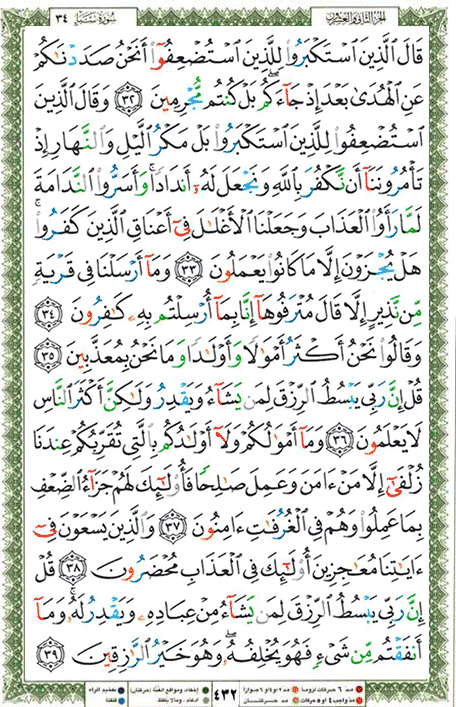 الجزء الثاني والعشرون
سورة سبإ ٣٤
قَالَ ٱلَّذِينَ ٱسْتَكْبَرُوا۟ لِلَّذِينَ ٱسْتُضْعِفُوٓا۟ أَنَحْنُ صَدَدْنَٰكُمْ
عَنِ ٱلْهُدَىٰ بَعْدَ إِذْ جَآءَكُم ۖ بَلْ كُنتُم مُّجْرِمِينَ ٣٢ وَقَالَ ٱلَّذِينَ
ٱسْتُضْعِفُوا۟ لِلَّذِينَ ٱسْتَكْبَرُوا۟ بَلْ مَكْرُ ٱلَّيْلِ وَٱلنَّهَارِ إِذْ
تَأْمُرُونَنَآ أَن نَّكْفُرَ بِٱللَّهِ وَنَجْعَلَ لَهُۥٓ أَندَادًا ۚ وَأَسَرُّوا۟ ٱلنَّدَامَةَ
لَمَّا رَأَوُا۟ ٱلْعَذَابَ وَجَعَلْنَا ٱلْأَغْلَٰلَ فِىٓ أَعْنَاقِ ٱلَّذِينَ كَفَرُوا۟ ۚ
هَلْ يُجْزَوْنَ إِلَّا مَا كَانُوا۟ يَعْمَلُونَ ٣٣ وَمَآ أَرْسَلْنَا فِى قَرْيَةٍ
مِّن نَّذِيرٍ إِلَّا قَالَ مُتْرَفُوهَآ إِنَّا بِمَآ أُرْسِلْتُم بِهِۦ كَٰفِرُونَ ٣٤
وَقَالُوا۟ نَحْنُ أَكْثَرُ أَمْوَٰلًا وَأَوْلَٰدًا وَمَا نَحْنُ بِمُعَذَّبِينَ ٣٥
قُلْ إِنَّ رَبِّى يَبْسُطُ ٱلرِّزْقَ لِمَن يَشَآءُ وَيَقْدِرُ وَلَٰكِنَّ أَكْثَرَ ٱلنَّاسِ
لَا يَعْلَمُونَ ٣٦ وَمَآ أَمْوَٰلُكُمْ وَلَآ أَوْلَٰدُكُم بِٱلَّتِى تُقَرِّبُكُمْ عِندَنَا
زُلْفَىٰٓ إِلَّا مَنْ ءَامَنَ وَعَمِلَ صَٰلِحًا فَأُو۟لَٰٓئِكَ لَهُمْ جَزَآءُ ٱلضِّعْفِ
بِمَا عَمِلُوا۟ وَهُمْ فِى ٱلْغُرُفَٰتِ ءَامِنُونَ ٣٧ وَٱلَّذِينَ يَسْعَوْنَ فِىٓ
ءَايَٰتِنَا مُعَٰجِزِينَ أُو۟لَٰٓئِكَ فِى ٱلْعَذَابِ مُحْضَرُونَ ٣٨ قُلْ
إِنَّ رَبِّى يَبْسُطُ ٱلرِّزْقَ لِمَن يَشَآءُ مِنْ عِبَادِهِۦ وَيَقْدِرُ لَهُۥ ۚ وَمَآ
أَنفَقْتُم مِّن شَىْءٍ فَهُوَ يُخْلِفُهُۥ ۖ وَهُوَ خَيْرُ ٱلرَّٰزِقِينَ ٣٩
مد ٦ حركات لزوماً مد ٢ أو ٤ أو ٦ جوازاً
مد واجب ٤ أو ٥ حركات مد حركتان
٤٣٢
إخفاء، ومواقع الغنة (حركتان) تفخيم الراء
ادغام، وما لا يلفظ قلقلة